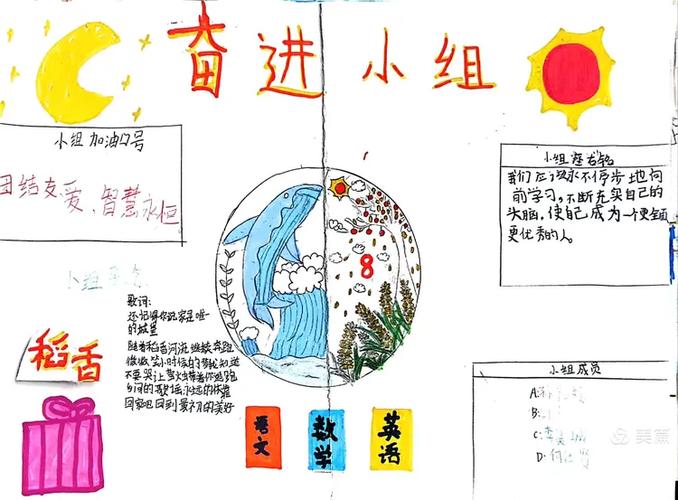 奋进小组
小组加油口号
团结友爱、智慧永恒
小组座右铭
我们应该永不停步地向
前学习，不断充实自己的
头脑，使自己成为一个更全面
更优秀的人。
8
小组
稻香
歌词：
还记得你说家是唯一
的城堡
随着稻香河流继续奔跑
微微笑 小时候的梦我知道
不要哭让萤火虫带着你逃跑
乡间的歌谣永远的依靠
回家吧回到最初的美好
语文
数学
英语
小组成员
A:
B:
C:李
D:何
美篇